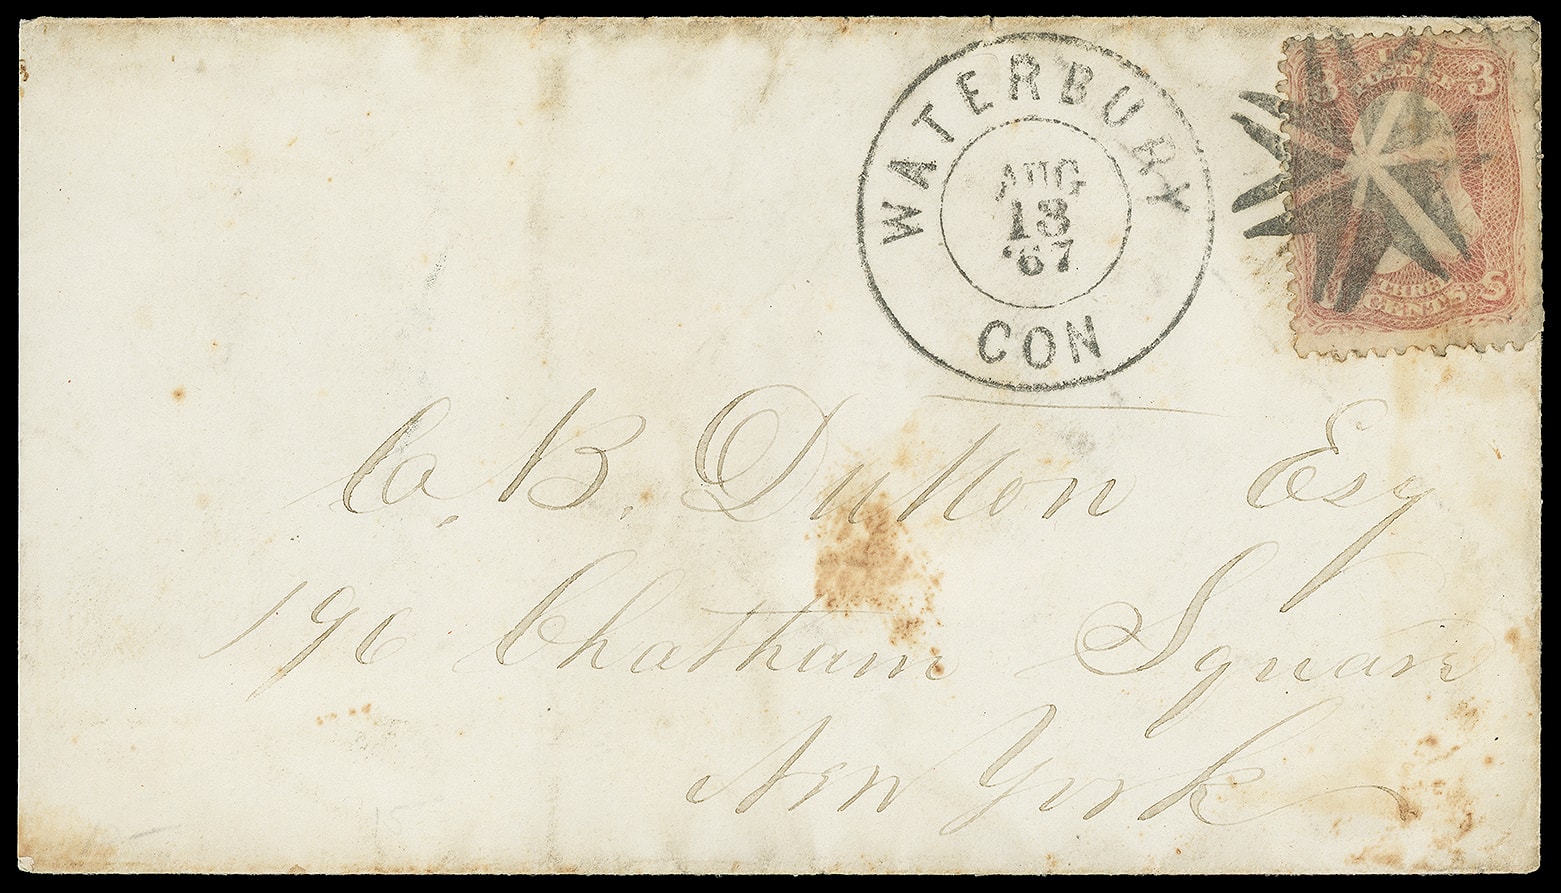 WATERBURY
AUG
13
'67
CON
3 3
THREE
CENTS.
C. B. Dutton Esq
196 Chatham Square
New York